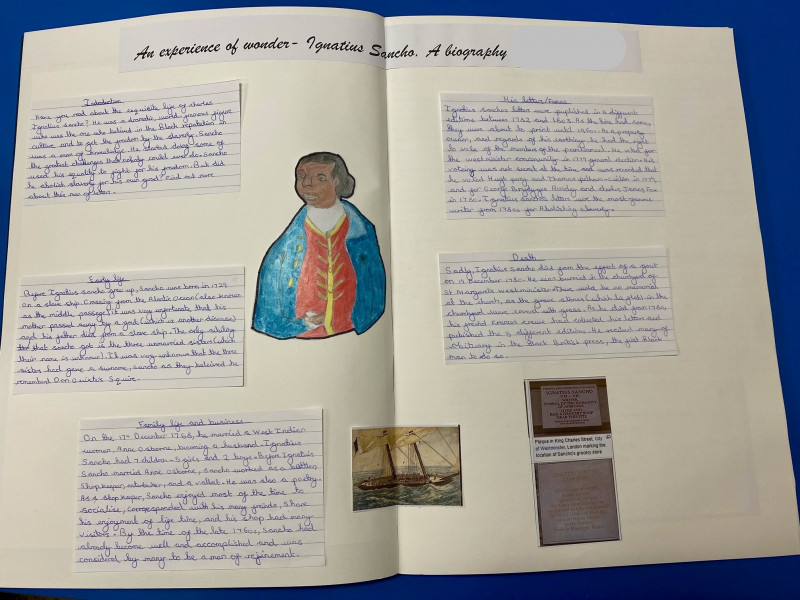 An experience of wonder- Ignatius Sancho. A biography
Introduction
Have you read about the exquisite life of charles
Ignatius Sancho? He was a dramatic, world famous figure
who was the one who behind in the Black reputation in
culture and to get the freedom by the slavery. Sancho
was a man of knowledge. He started doing some of
the greatest challenges that nobody could ever do. Sancho
used his equality to fight for his freedom. But did
he abolish slavery for his own good? Find out more
about this man of letters.
Early life
Before Ignatius Sancho grew up, Sancho was born in 1729
on a slave ship. Crossing from the Atlantic Ocean (also known
as the middle passage). It was very unfortunate that his
mother passed away by a gout (which is another disease)
and his father died from a slave ship. The only sibling
that Sancho got is the three unmarried sisters (which
their name is unknown). It was very unknown that the three
sister had gave a surname, Sancho as they beleived he
remembered Don Quixote's Squire.
Family life and business
On the 17th December 1758, he married a West Indian
women, Anne Osborne, becoming a husband. Ignatius
Sancho had 7 children - 5 girls and 2 boys. Before Ignatius
Sancho married Anne Osborne, Sancho worked as a butler,
Shopkeeper, and a vallet. He was also a poetry.
As a shop keeper, Sancho enjoyed most of the time to
socialise, correspondent with his many friends, share
his enjoyment of life time, and his shop had many
visitors. By the time of the late 1760s, Sancho had
already become well and accomplished and was
considered by many to be a man of refinement.
His letters/Fames
Ignatius sancho's letters were puplished in 5 different
editions between 1782 and 1803. As the time had come,
they were about to print until 1960s. As a property
owner, and regards of his earning, he had the right
to vote of the members of the parliament. He voted for
the westminister community in 1774 general election. His
voting was not secret at the time and was recorded that
he voted Hugh percy and Thomas pelham-clinton in 1774
and for George Brydges Rodney and charles James Fox
in 1780. Ignatius Sancho's letters were the most famous
writer from 1780s for Abolishing slavery.
Death
Sadly, Ignatius Sancho died from the effect of a gout
on 14 December 1780. He was burried in the churchyard of
St Margarets Westminister. There were be no memorial
at the church, as the grave stones (which lie flat) in the
churchyard were covered with grass. As he died from 1780,
his friend Frances crewe had collected his letters and
published the 5 different editions. He recieved many of
Obituary in the Black British press, the first Black
man to do so.
IGNATIUS SANCHO
Plaque in King Charles Street, City
of Westminster, London marking the
location of Sancho's grocery store